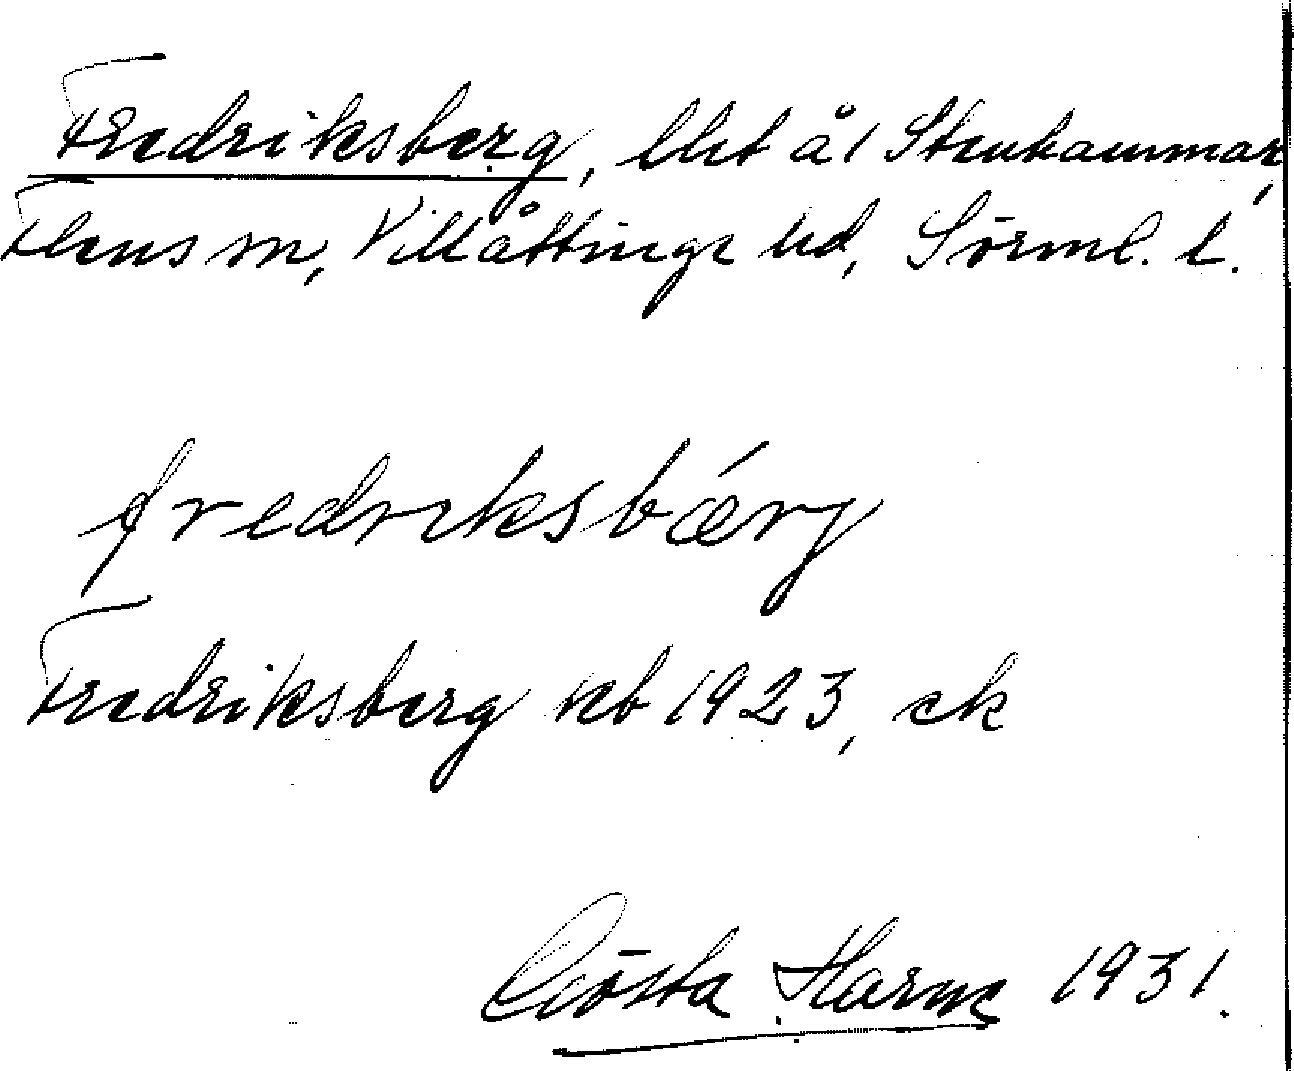 Fredriksberg, lht å 1 Stenhammar,
Flens sn, Villåttinge hd, Sörml. l.
fredriksbǽrg
Fredriksberg kb 1923, ek
Gösta Harne 1931.